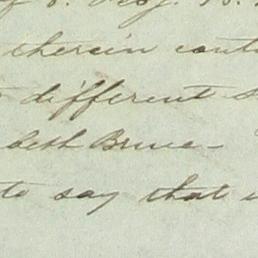 therein cont
different s
beth Bruce-
to say that